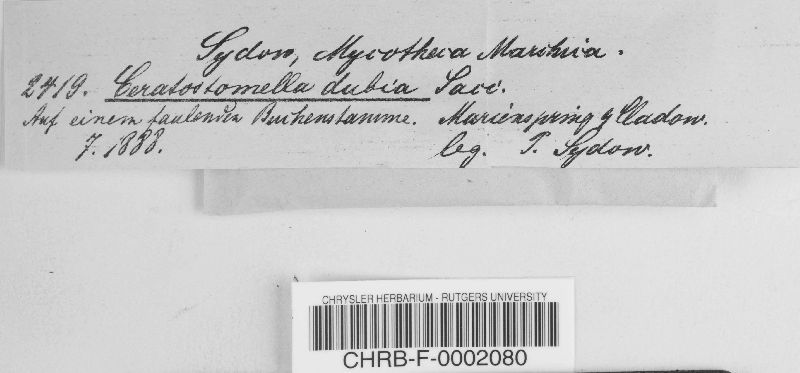 Sydow, Mycotheca Marchica.
2419. Ceratostomella dubia Sacc.
Auf einem faulenden Buchenstamme. Marienspring Cladow.
7. 1888. leg. P. Sydow.
CHRYSLER HERBARIUM - RUTGERS UNIVERSITY
CHRB-F-0002080